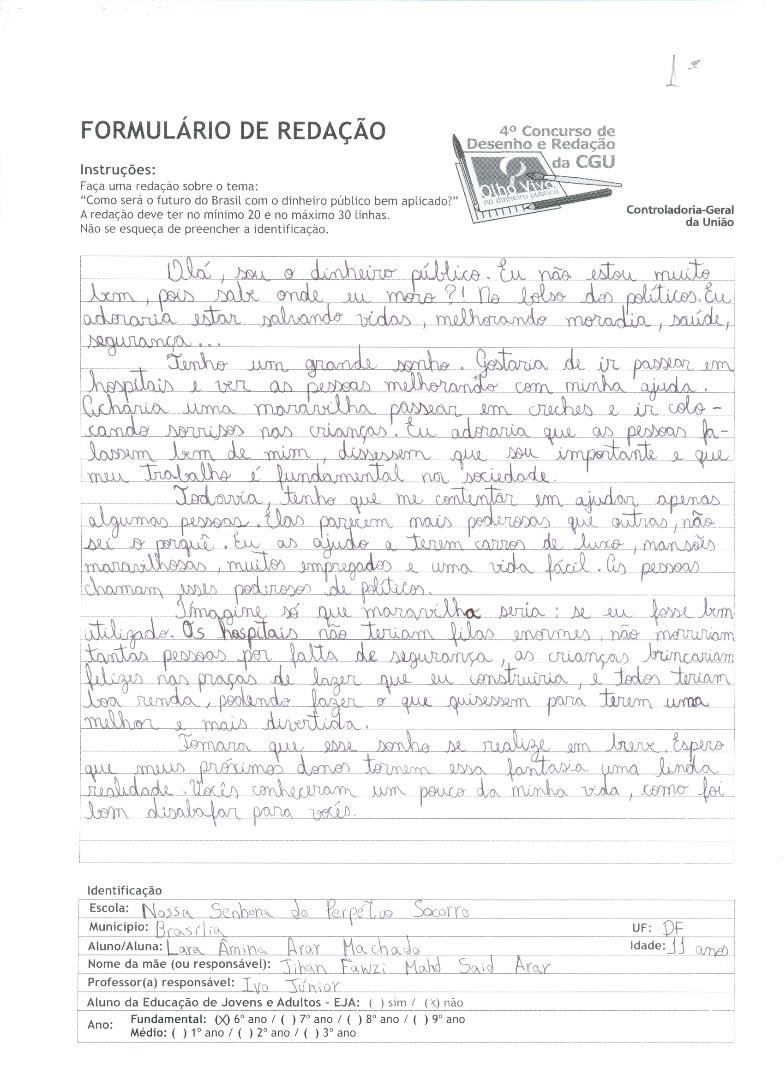 1º
FORMULÁRIO DE REDAÇÃO
4º Concurso de
Desenho e Redação
da CGU
Olho Vivo
no dinheiro público
Controladoria-Geral
da União
Instruções:
Faça uma redação sobre o tema:
“Como será o futuro do Brasil com o dinheiro público bem aplicado?”
A redação deve ter no mínimo 20 e no máximo 30 linhas.
Não se esqueça de preencher a identificação.
Olá, sou o dinheiro público. Eu não estou muito
bem, pois sabe onde eu moro?! No bolso dos políticos. Eu
adoraria estar salvando vidas, melhorando moradia, saúde,
segurança...
Tenho um grande sonho. Gostaria de ir passear em
hospitais e ver as pessoas melhorando com minha ajuda.
Acharia uma maravilha passear em creches e ir colo-
cando sorrisos nas crianças. Eu adoraria que as pessoas fa-
lassem bem de mim, dissessem que sou importante e que
meu trabalho é fundamental na sociedade.
Todavia, tenho que me contentar em ajudar apenas
algumas pessoas. Elas parecem mais poderosas que outras, não
sei o porquê. Eu as ajudo a terem carros de luxo, mansões
maravilhosas, muitos empregados e uma vida fácil. As pessoas
chamam esses poderosos de políticos.
Imagine só que maravilha seria: se eu fosse bem
utilizado. Os hospitais não teriam filas enormes, não morreriam
tantas pessoas por falta de segurança, as crianças brincariam
felizes nas praças de lazer que eu construiria, e todos teriam
boa renda, podendo fazer o que quisessem para terem uma
melhor e mais divertida.
Tomara que esse sonho se realize em breve. Espero
que meus próximos donos tornem essa fantasia uma linda
realidade. Vocês conheceram um pouco da minha vida, como foi
bom disabafar para vocês.
Identificação
Escola: Nossa Senhora do Perpétuo Socorro
Município: Brasília UF: DF
Aluno/Aluna: Lara Âmina Arar Machado Idade: 11 anos
Nome da mãe (ou responsável): Jihan Fawzi Mahd Said Arar
Professor(a) responsável: Ivo Júnior
Aluno da Educação de Jovens e Adultos - EJA: ( ) sim / (x) não
Ano: Fundamental: (X) 6º ano / ( ) 7º ano / ( ) 8º ano / ( ) 9º ano
Médio: ( ) 1º ano / ( ) 2º ano / ( ) 3º ano